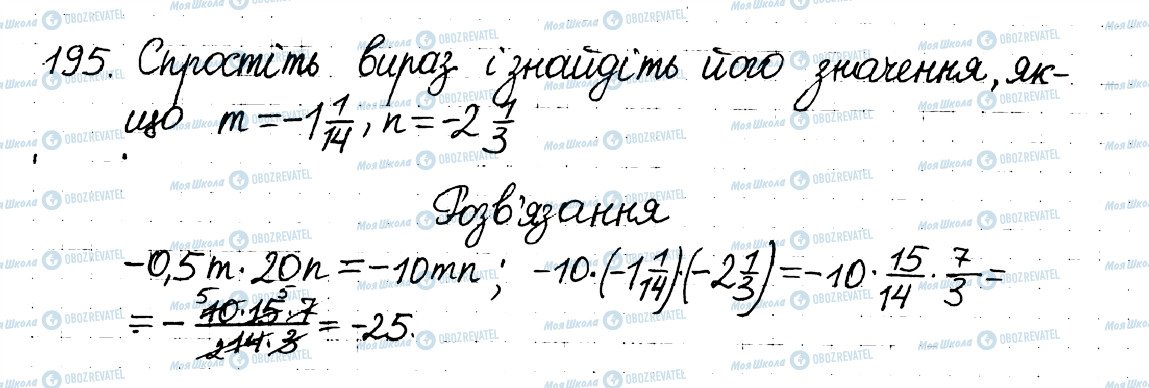 195. Спростіть вираз і знайдіть його значення, як-
що m = -1 1/14, n = -2 1/3
Розв'язання
-0,5m · 20n = -10mn; -10·(-1 1/14)·(-2 1/3) = -10 · 15/14 · 7/3 =
= - 5 10·15 5·7 / 2 14·3 = -25.
МояШкола OBOZREVATEL